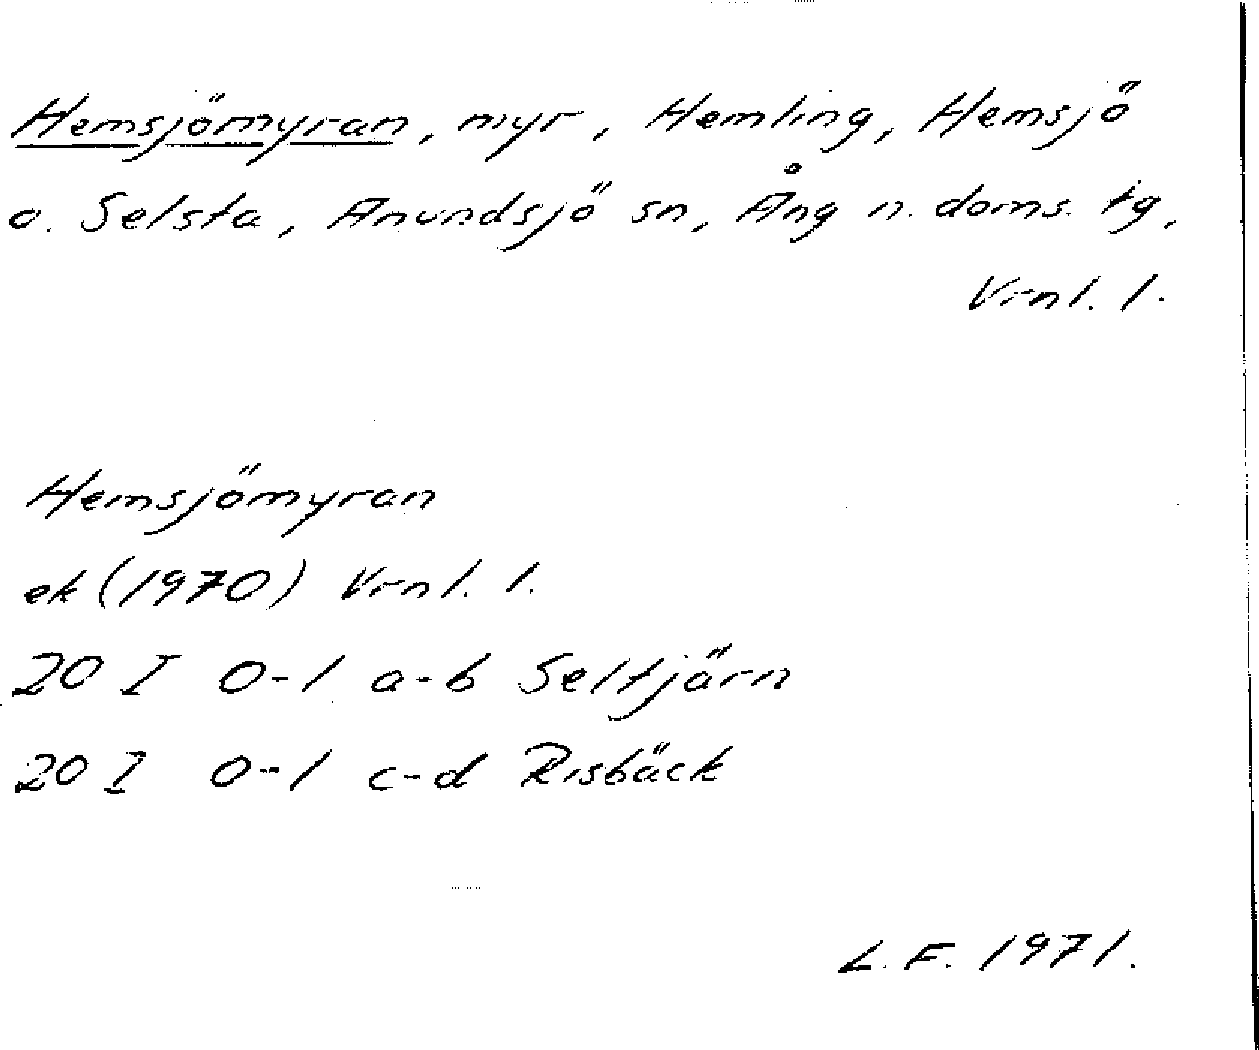 Hemsjömyran, myr, Hemling, Hemsjö
o. Selsta, Anundsjö sn, Ång n. doms. tg,
Vrnl. l.
Hemsjömyran
ek (1970) Vrnl. l.
20 I 0-1 a-b Seltjärn
20 I 0-1 c-d Risbäck
L. F. 1971.